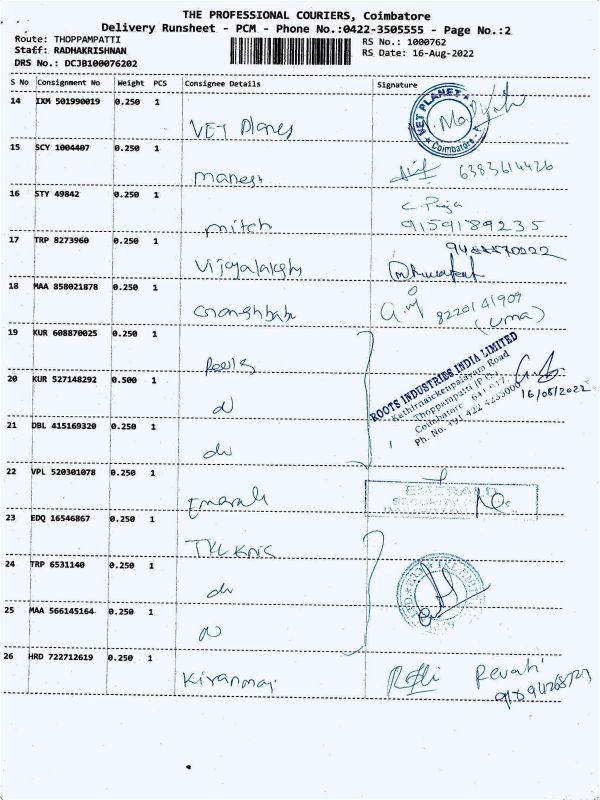 THE PROFESSIONAL COURIERS, Coimbatore
Delivery Runsheet - PCM - Phone No.:0422-3505555 - Page No.:2
Route: THOPPAMPATTI
RS No.: 1000762
Staff: RADHAKRISHNAN
RS Date: 16-Aug-2022
DRS No.: DCJB100076202
S No Consignment No Weight PCS Consignee Details Signature
14 IXM 501990019 0.250 1 VET Planes
VET PLANET Coimbatore
15 SCY 1004407 0.250 1 manesh 6383614426
16 STY 49842 0.250 1 mitch C. Puja
9159189235
17 TRP 8273960 0.250 1 Vijayalaksh
18 MAA 858021878 0.250 1 8220141909
(uma)
19 KUR 608870025 0.250 1 Roots
ROOTS INDUSTRIES INDIA LIMITED
Kathirnaickenpalayam Road
Thoppampatti (P.O.)
Coimbatore - 641 017.
Ph. No. +91 422
16/08/2022
20 KUR 527148292 0.500 1 do
21 DBL 415169320 0.250 1 do
22 VPL 520301078 0.250 1 Emerald
EMERALD
23 EDQ 16546867 0.250 1
24 TRP 6531140 0.250 1 do
25 MAA 566145164 0.250 1 do
26 HRD 722712619 0.250 1 Kiranmai Revathi